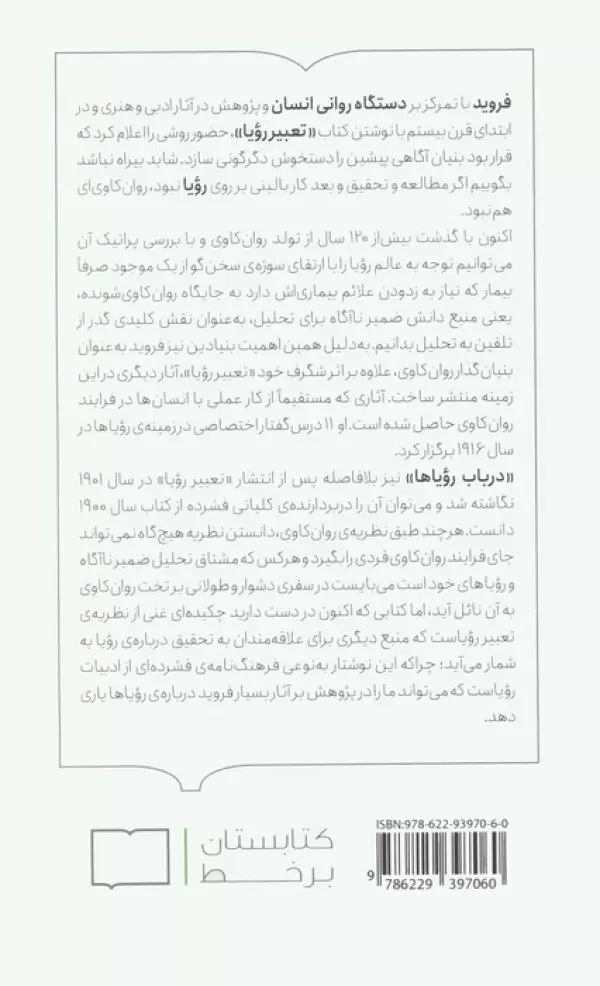 فروید با تمرکز بر دستگاه روانی انسان و پژوهش در آثار ادبی و هنری و در
ابتدای قرن بیستم با نوشتن کتاب «تعبیر رؤیا»، حضور روشی را اعلام کرد که
قرار بود بنیان آگاهی پیشین را دستخوش دگرگونی سازد. شاید بیراه نباشد
بگوییم اگر مطالعه و تحقیق و بعد کار بالینی بر روی رؤیا نبود، روان‌کاوی‌ای
هم نبود.
اکنون با گذشت بیش از ۱۲۰ سال از تولد روان‌کاوی و با بررسی پراتیک آن
می‌توانیم توجه به عالم رؤیا را با ارتقای سوژه‌ی سخن‌گو از یک موجود صرفاً
بیمار که نیاز به زدودن علائم بیماری‌اش دارد به جایگاه روان‌کاوی‌شونده،
یعنی منبع دانش ضمیر ناآگاه برای تحلیل، به‌عنوان نقش کلیدی گذر از
تلقین به تحلیل بدانیم. به‌دلیل همین اهمیت بنیادین نیز فروید به‌عنوان
بنیان‌گذار روان‌کاوی، علاوه بر اثر شگرف خود «تعبیر رؤیا»، آثار دیگری در این
زمینه منتشر ساخت. آثاری که مستقیماً از کار عملی با انسان‌ها در فرایند
روان‌کاوی حاصل شده است. او ۱۱ درس‌گفتار اختصاصی در زمینه‌ی رؤیاها در
سال ۱۹۱۶ برگزار کرد.
«درباب رؤیاها» نیز بلافاصله پس از انتشار «تعبیر رؤیا» در سال ۱۹۰۱
نگاشته شد و می‌توان آن را دربردارنده‌ی کلیاتی فشرده از کتاب سال ۱۹۰۰
دانست. هرچند طبق نظریه‌ی روان‌کاوی، دانستن نظریه هیچ‌گاه نمی‌تواند
جای فرایند روان‌کاوی فردی را بگیرد و هرکس که مشتاق تحلیل ضمیر ناآگاه
و رؤیاهای خود است می‌بایست در سفری دشوار و طولانی بر تخت روان‌کاوی
به آن نائل آید، اما کتابی که اکنون در دست دارید چکیده‌ای غنی از نظریه‌ی
تعبیر رؤیاست که منبع دیگری برای علاقه‌مندان به تحقیق درباره‌ی رؤیا به
شمار می‌آید؛ چراکه این نوشتار به‌نوعی فرهنگ‌نامه‌ی فشرده‌ای از ادبیات
رؤیاست که می‌تواند ما را در پژوهش بر آثار بسیار فروید درباره‌ی رؤیاها یاری
دهد.
ISBN:978-622-93970-6-0
9 786229 397060
کتابستان
برخط